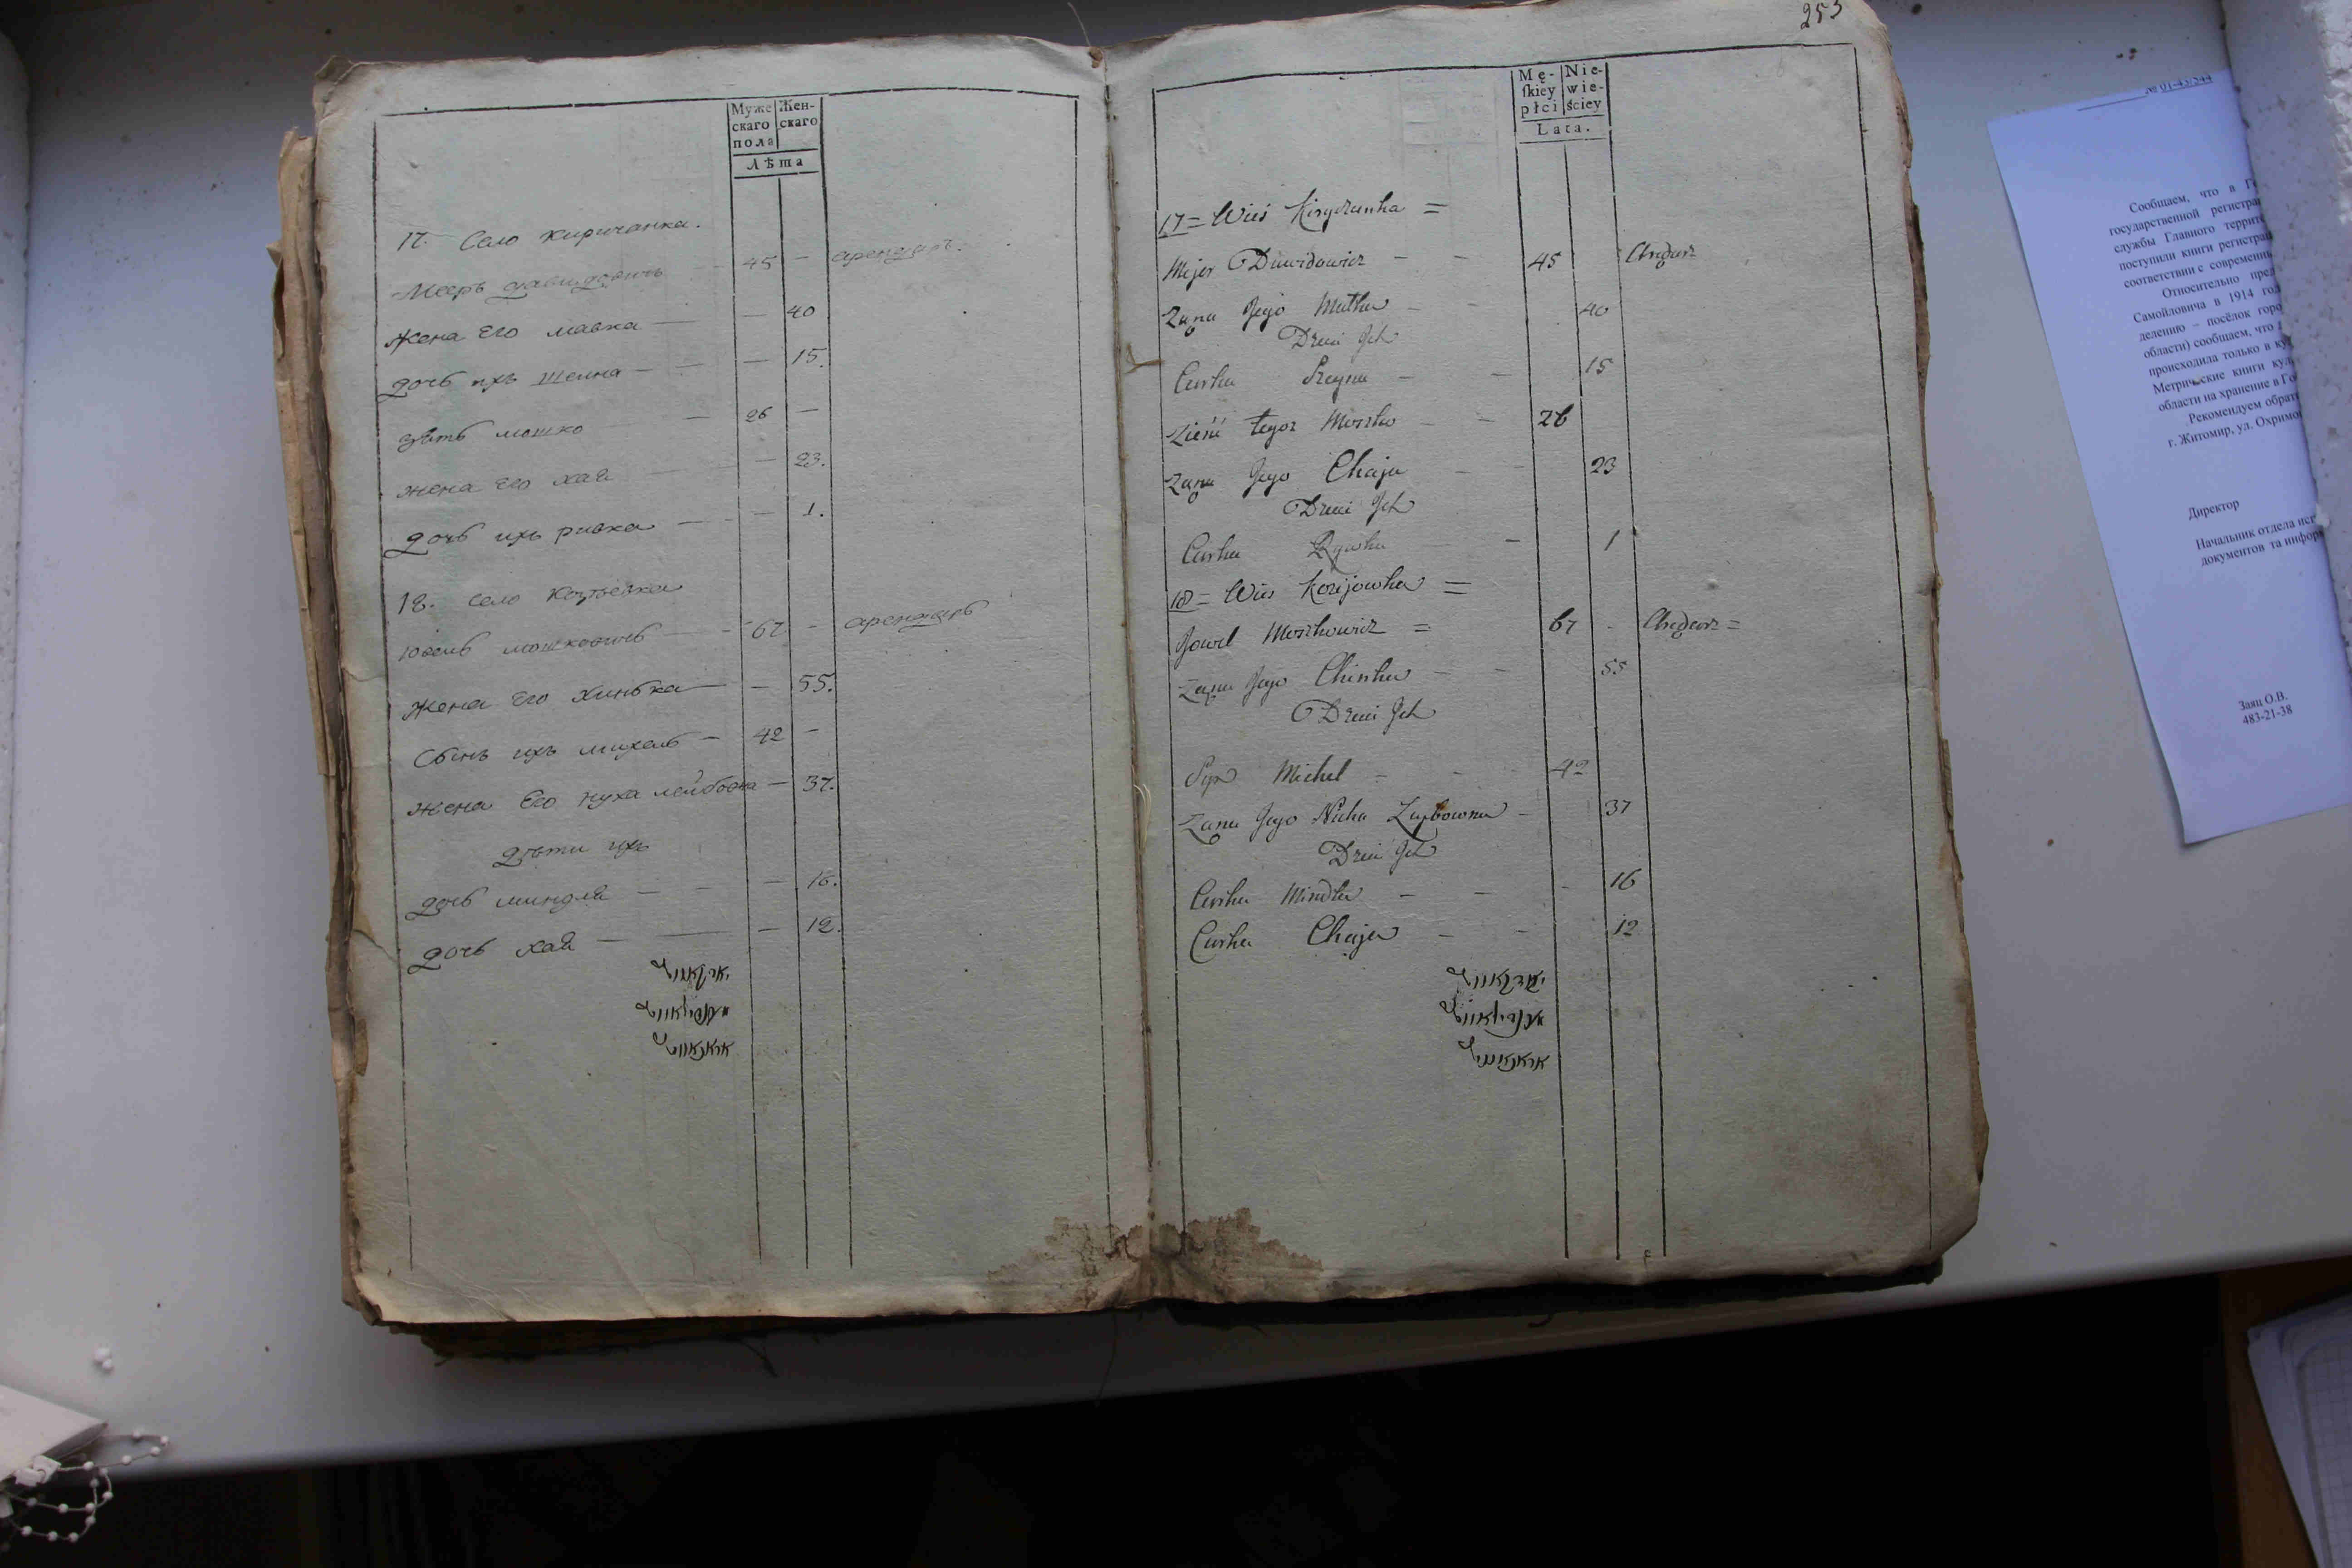 Муже
скаго
пола
Жен-
скаго
Лѣта
17. Село Киричанка.
Мееръ Давидовичь — 45 — арендарь.
Жена Его малка — — 40
дочь ихъ шейна — — 15.
зять мошко — 26 —
жена Его хая — — 23.
дочь ихъ ривка — — 1.
18. Село
Юдель мошковичь — 67 — арендарь
Жена Его Хинька — — 55.
Сынъ ихъ михель — 42 —
жена Его нуха лейбовна — 37.
Дѣти ихъ
дочь миндля — — — 16.
дочь хая — — — 12.
253
Mę-
skiey
płci
Nie-
wie-
ściey
Lata.
17 = Wieś Kiryczanka =
Mejer Dawidowicz — — 45 Arędarz
Żąna Jego Malka — 40
Dzieci Ich
Curka Szeyna — — 15
Zieńć tegoz Moszko — — 26
Żąna Jego Chaja — — 23
Dzieci Ich
Curka Rywka — 1
18 = Wieś Kozijowka =
Moszkowicz = 67 - Arędarz =
Żąna Jego Chinka — — 55
Dzieci Ich
Syn Michel = - - 42
Żąna Jego Nucha Leybowna — 37
Dzieci Ich
Curka Mindla — — - 16
Curka Chaja — — 12
№ 01-43/544
Сообщаем, что в
государственной
службы Главного
поступили книги
соответствии с
Относительно
Самойловича в 1914
делению – посёлок
области) сообщаем, что
происходила только в
Метрические книги
области на хранение в
Рекомендуем
г. Житомир, ул.
Директор
Начальник отдела
документов та
Заяц О.В.
483-21-38